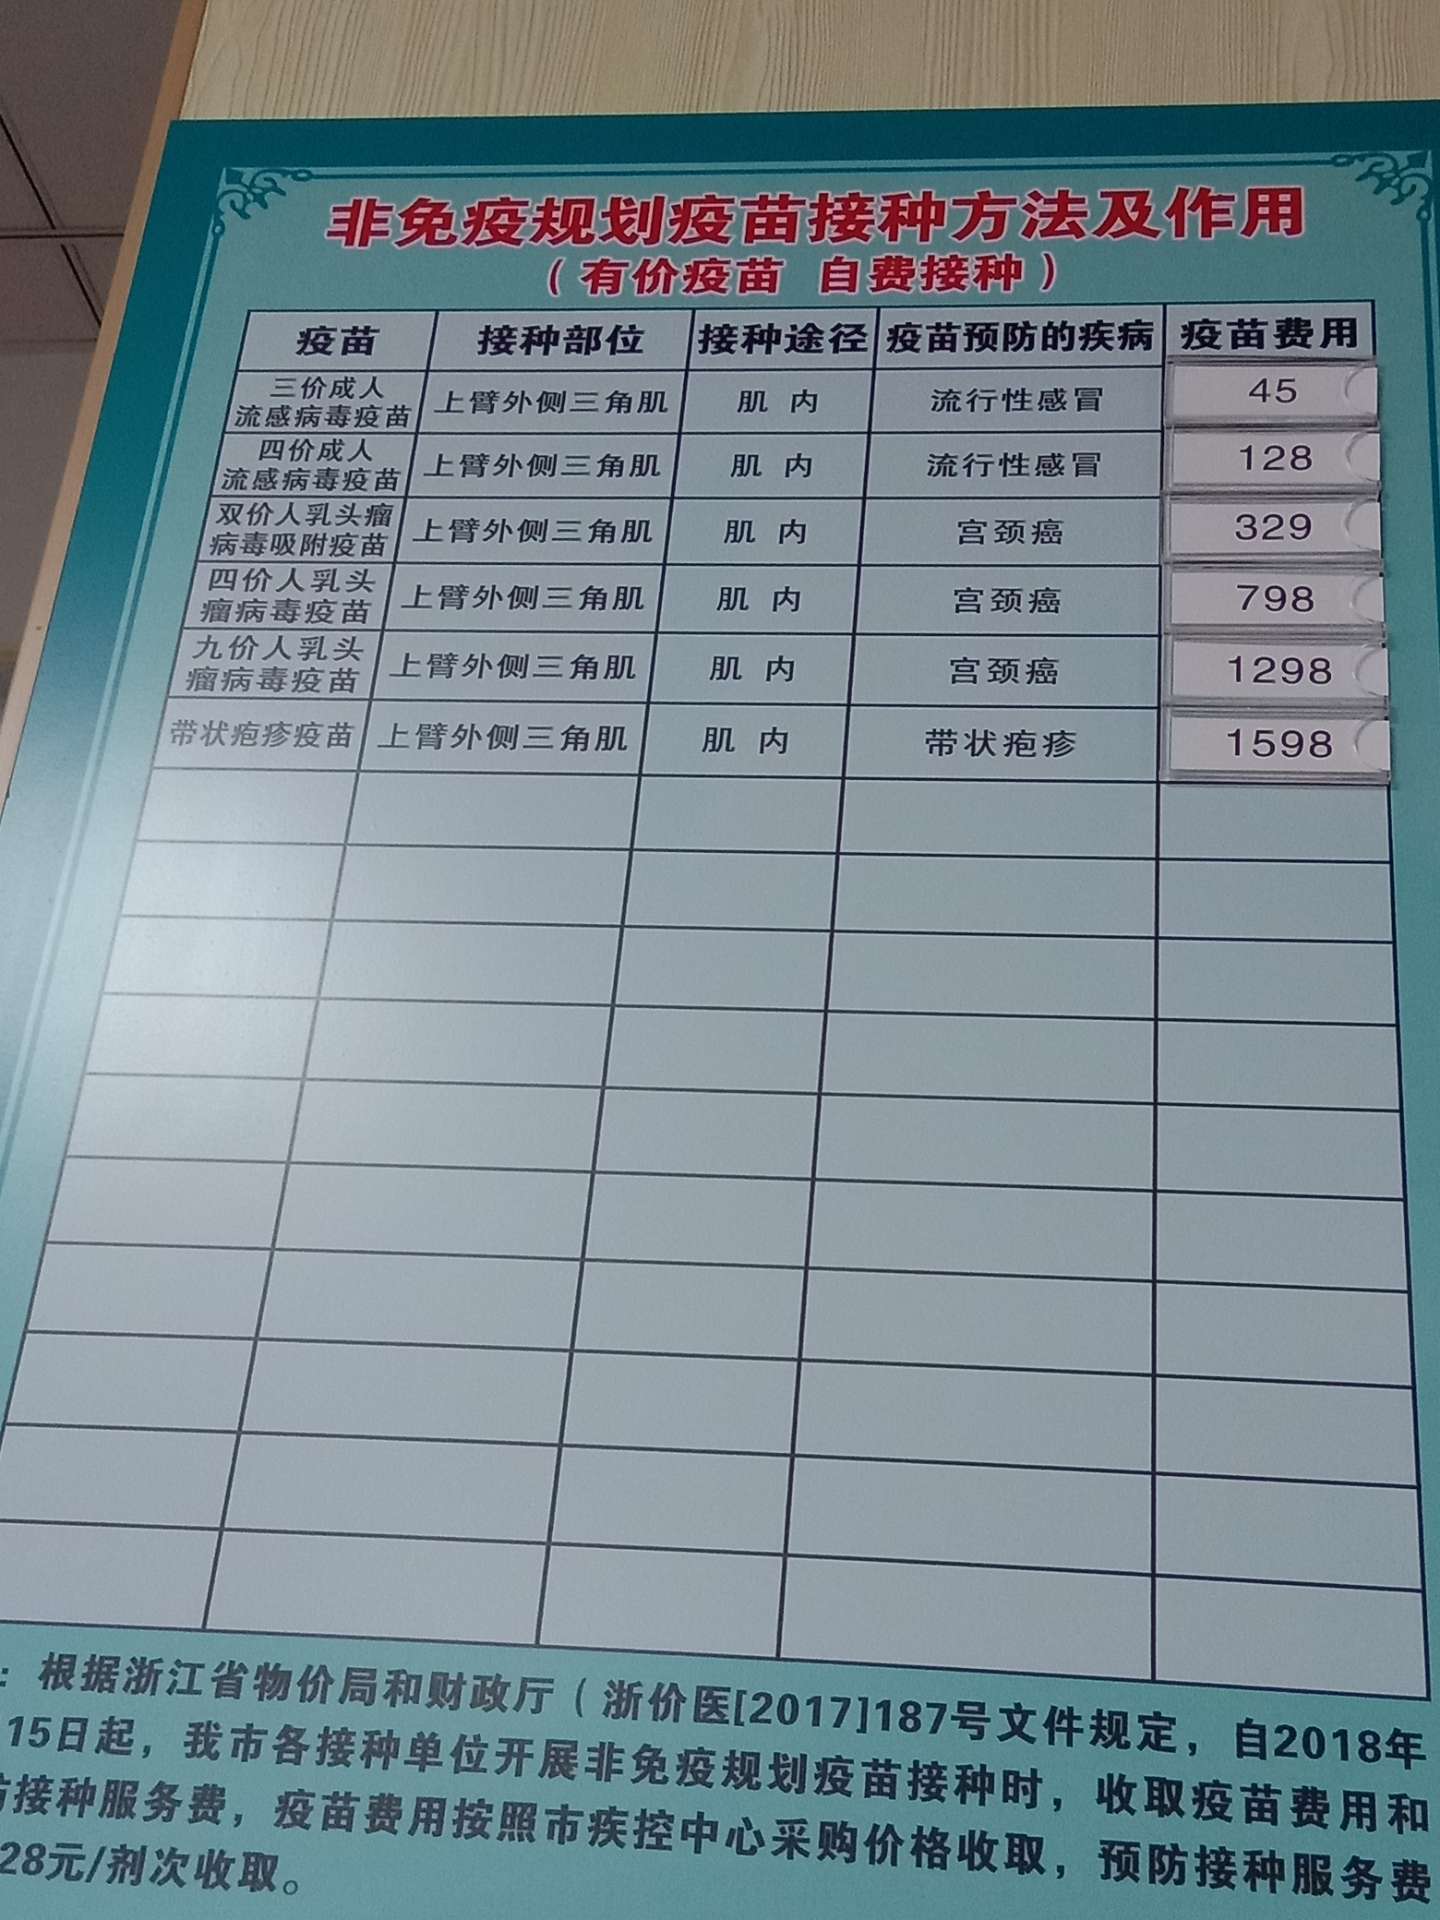 非免疫规划疫苗接种方法及作用
（有价疫苗 自费接种）
疫苗 接种部位 接种途径 疫苗预防的疾病 疫苗费用
三价成人
流感病毒疫苗 上臂外侧三角肌 肌 内 流行性感冒 45
四价成人
流感病毒疫苗 上臂外侧三角肌 肌 内 流行性感冒 128
双价人乳头瘤
病毒吸附疫苗 上臂外侧三角肌 肌 内 宫颈癌 329
四价人乳头
瘤病毒疫苗 上臂外侧三角肌 肌 内 宫颈癌 798
九价人乳头
瘤病毒疫苗 上臂外侧三角肌 肌 内 宫颈癌 1298
带状疱疹疫苗 上臂外侧三角肌 肌 内 带状疱疹 1598
：根据浙江省物价局和财政厅（浙价医[2017]187号文件规定，自2018年
15日起，我市各接种单位开展非免疫规划疫苗接种时，收取疫苗费用和
防接种服务费，疫苗费用按照市疾控中心采购价格收取，预防接种服务费
28元/剂次收取。